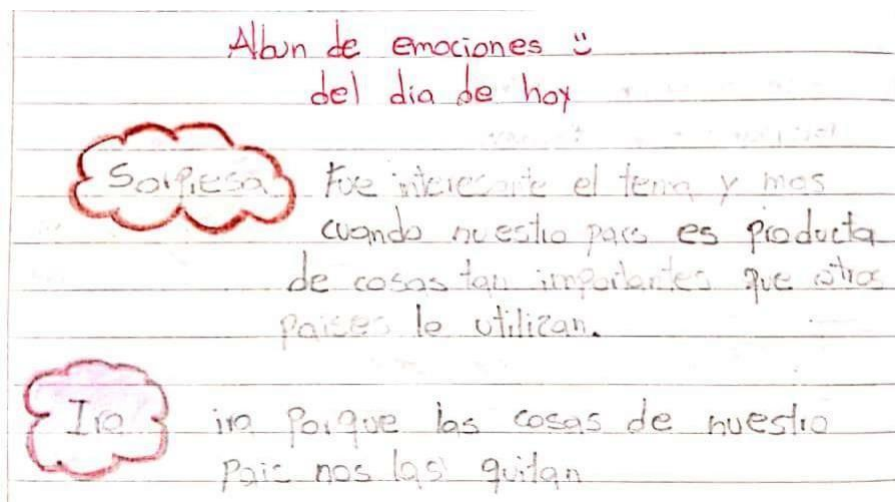 Albun de emociones ü
del dia de hoy
Sorpresa
Fue interesante el tema y mas
cuando nuestro pais es producta
de cosas tan importantes que otros
paises le utilizan.
Ira
ira porque las cosas de nuestro
pais nos las quitan